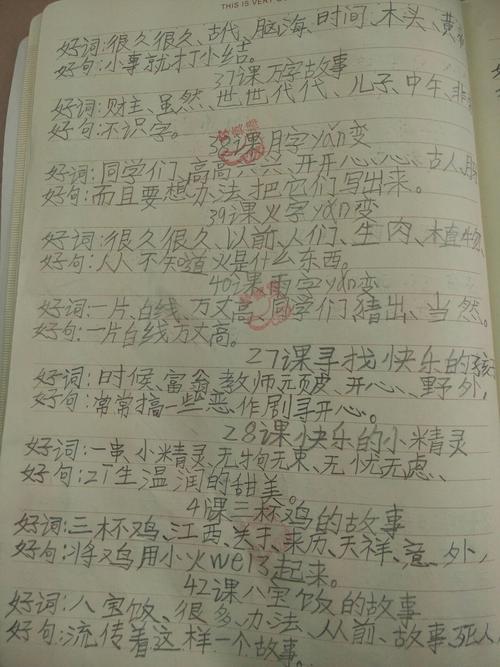 THIS IS VERY
好词:很久很久、古代、脑海、时间、木头、黄
好句:小事就打小结。
37课万字故事
好词:财主、虽然、世世代代、儿子、中午、非
好句:不识字。
38课月字yǎn变
好词:同学们、高高兴兴、开开心心、古人、
好句:而且要想办法把它们写出来。
39课火字yǎn变
好词:很久很久、以前、人们、生肉、植物、
好句:人人不知道火是什么东西。
40课雨字yǎn变
好词:一片、白线、万丈高、同学们、猜出、当然。
好句:一片白线万丈高。
27课寻找快乐的孩
好词:时候、富翁、教师、开心、野外,
好句:常常搞一些恶作剧寻开心。
28课快乐的小精灵
好词:一串、小精灵、无拘无束、无忧无虑、
好句:生温润的甜美。
41课三杯鸡的故事
好词:三杯鸡、江西、关于、来历、天祥、意外,
好句:将鸡用小火wei起来。
42课八宝饭的故事
好词:八宝饭、很多、办法、从前、故事、死人
好句:流传着这样一个故事。